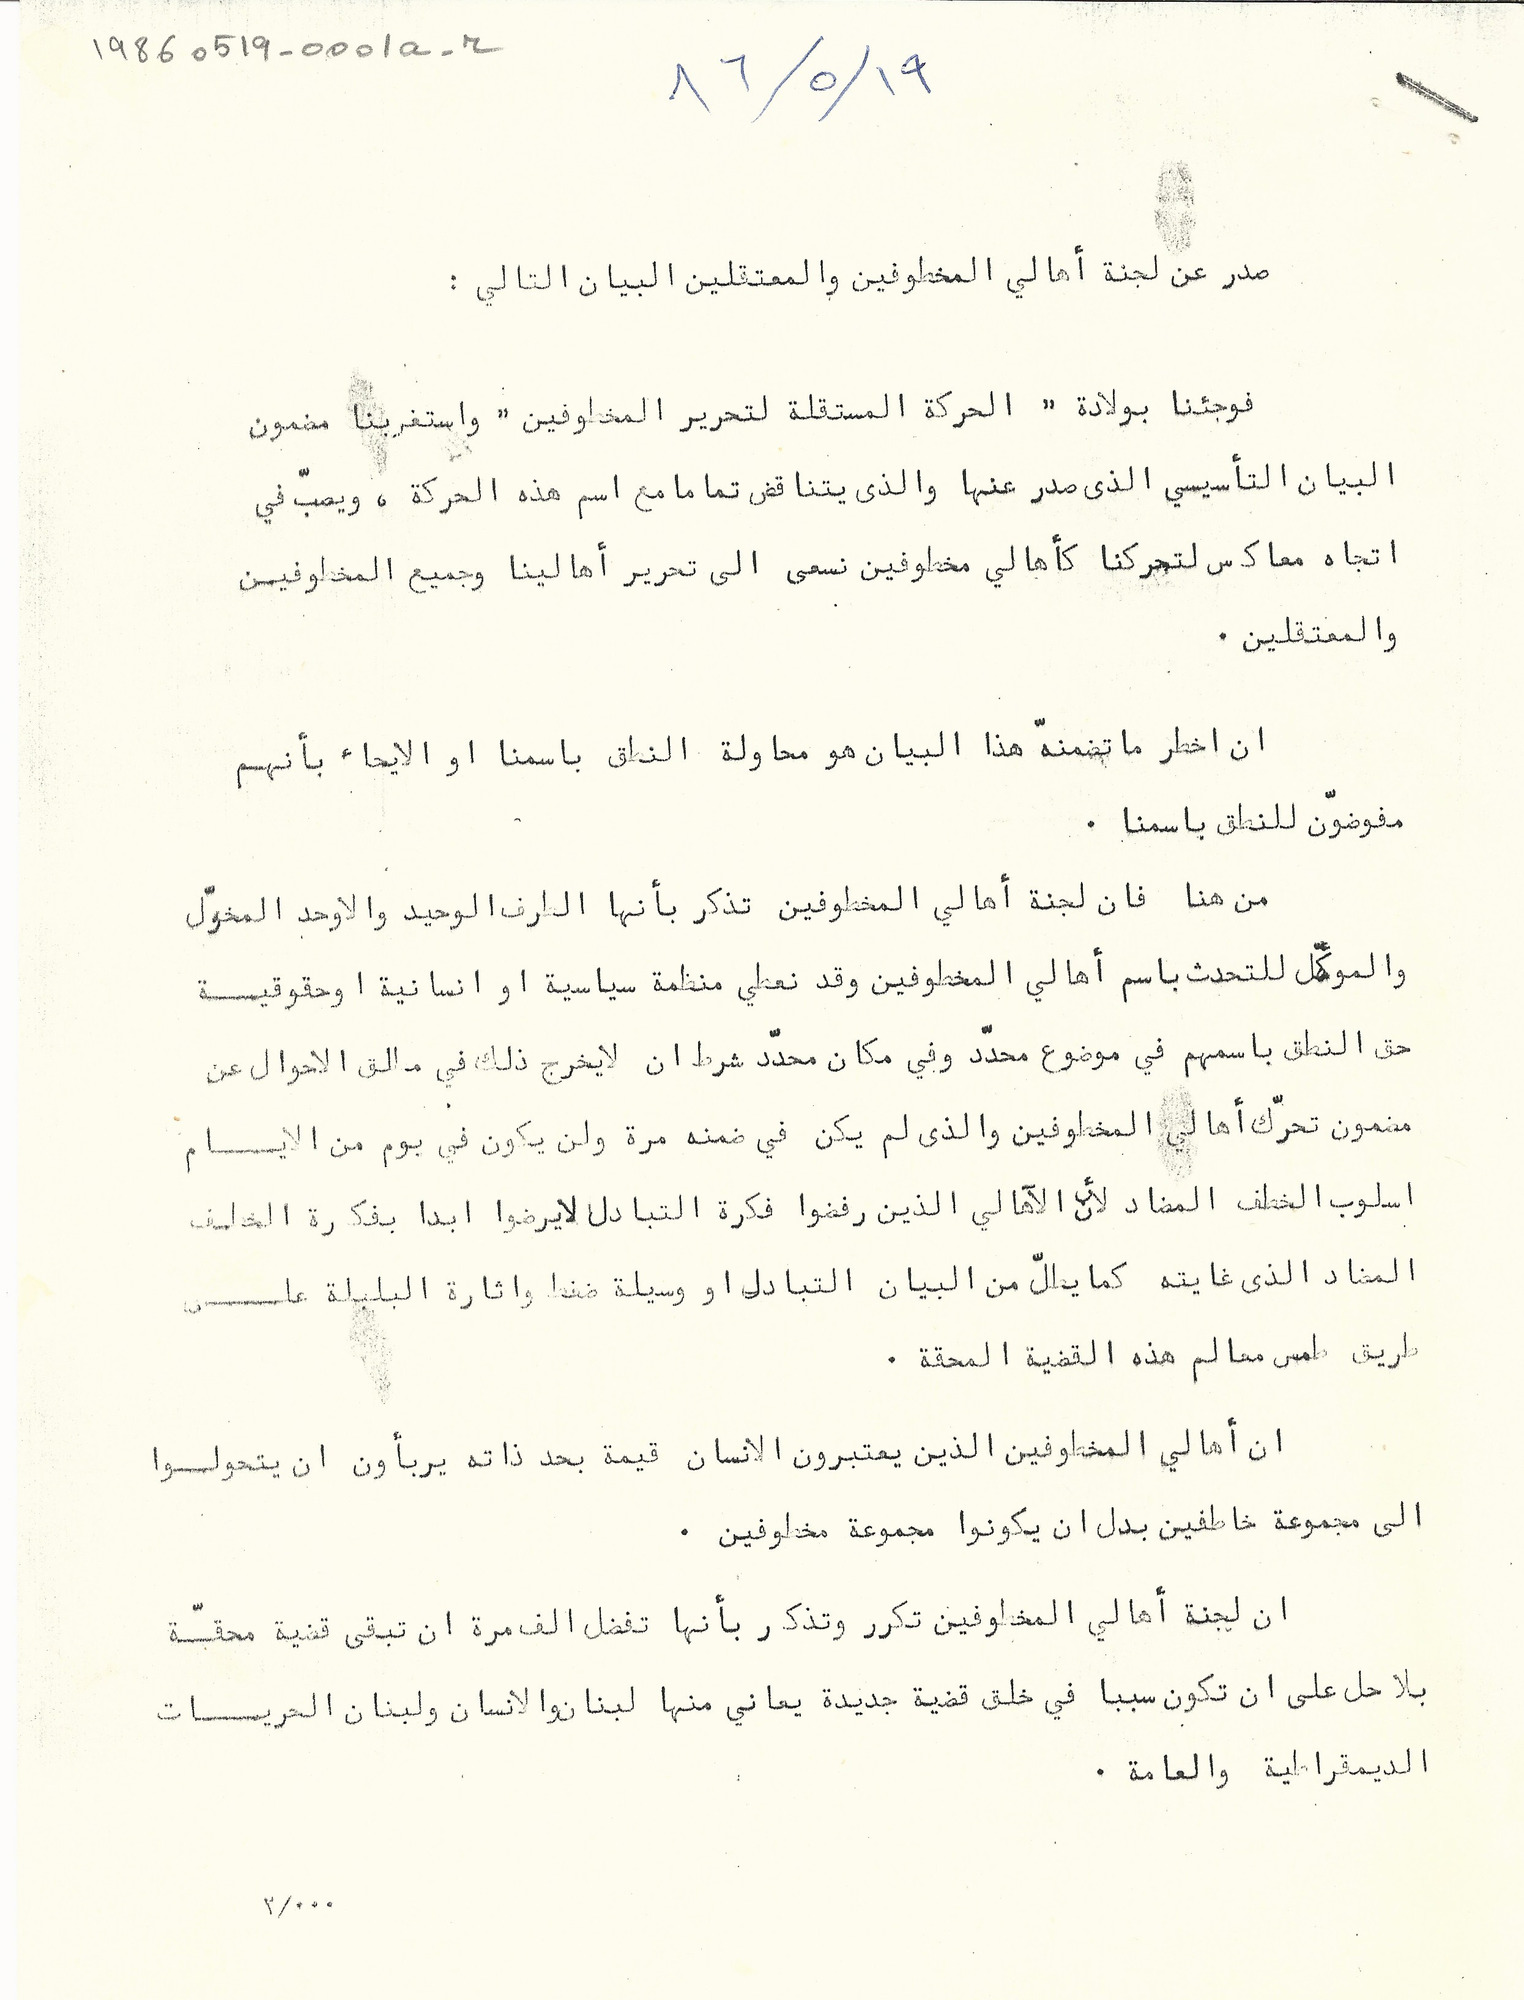 19860519-0001a-r
٨٦/٥/١٩
صدر عن لجنة أهالي المخطوفين والمعتقلين البيان التالي :
فوجئنا بولادة " الحركة المستقلة لتحرير المخطوفين " واستغربنا مضمون
البيان التأسيسي الذى صدر عنها والذى يتناقض تماما مع اسم هذه الحركة ، ويصبّ في
اتجاه معاكس لتحركنا كأهالي مخطوفين نسعى الى تحرير أهالينا وجميع المخطوفيـن
والمعتقلين .
ان اخطر ما تضمنهّ هذا البيان هو محاولة النطق باسمنا او الايحاء بأنهـم
مفوضوّن للنطق باسمنا .
من هنا فان لجنة أهالي المخطوفين تذكر بأنها الطرف الوحيد والاوحد المخوّل
والموكّل للتحدث باسم أهالي المخطوفين وقد نعطي منظمة سياسية او انسانية او حقوقيـــة
حق النطق باسمهم في موضوع محدّد وفي مكان محدّد شرط ان لايخرج ذلك في مطلق الاحوال عن
مضمون تحرّك أهالي المخطوفين والذى لم يكن في ضمنه مرة ولن يكون في يوم من الايــــام
اسلوب الخطف المضاد لأن الأهالي الذين رفضوا فكرة التبادل لايرضوا ابدا بفكرة الخطف
المضاد الذى غايته كما يطلّ من البيان التبادل او وسيلة ضغط واثارة البلبلة علــــى
طريق طمس معالم هذه القضية المحقة .
ان أهالي المخطوفين الذين يعتبرون الانسان قيمة بحد ذاته يربأون ان يتحولــوا
الى مجموعة خاطفين بدل ان يكونوا مجموعة مخطوفين .
ان لجنة أهالي المخطوفين تكرر وتذكر بأنها تفضل الف مرة ان تبقى قضية محقـّـة
بلا حل على ان تكون سببا في خلق قضية جديدة يعاني منها لبنان والانسان ولبنان الحريـــات
الديمقراطية والعامة .
٢/٠٠٠